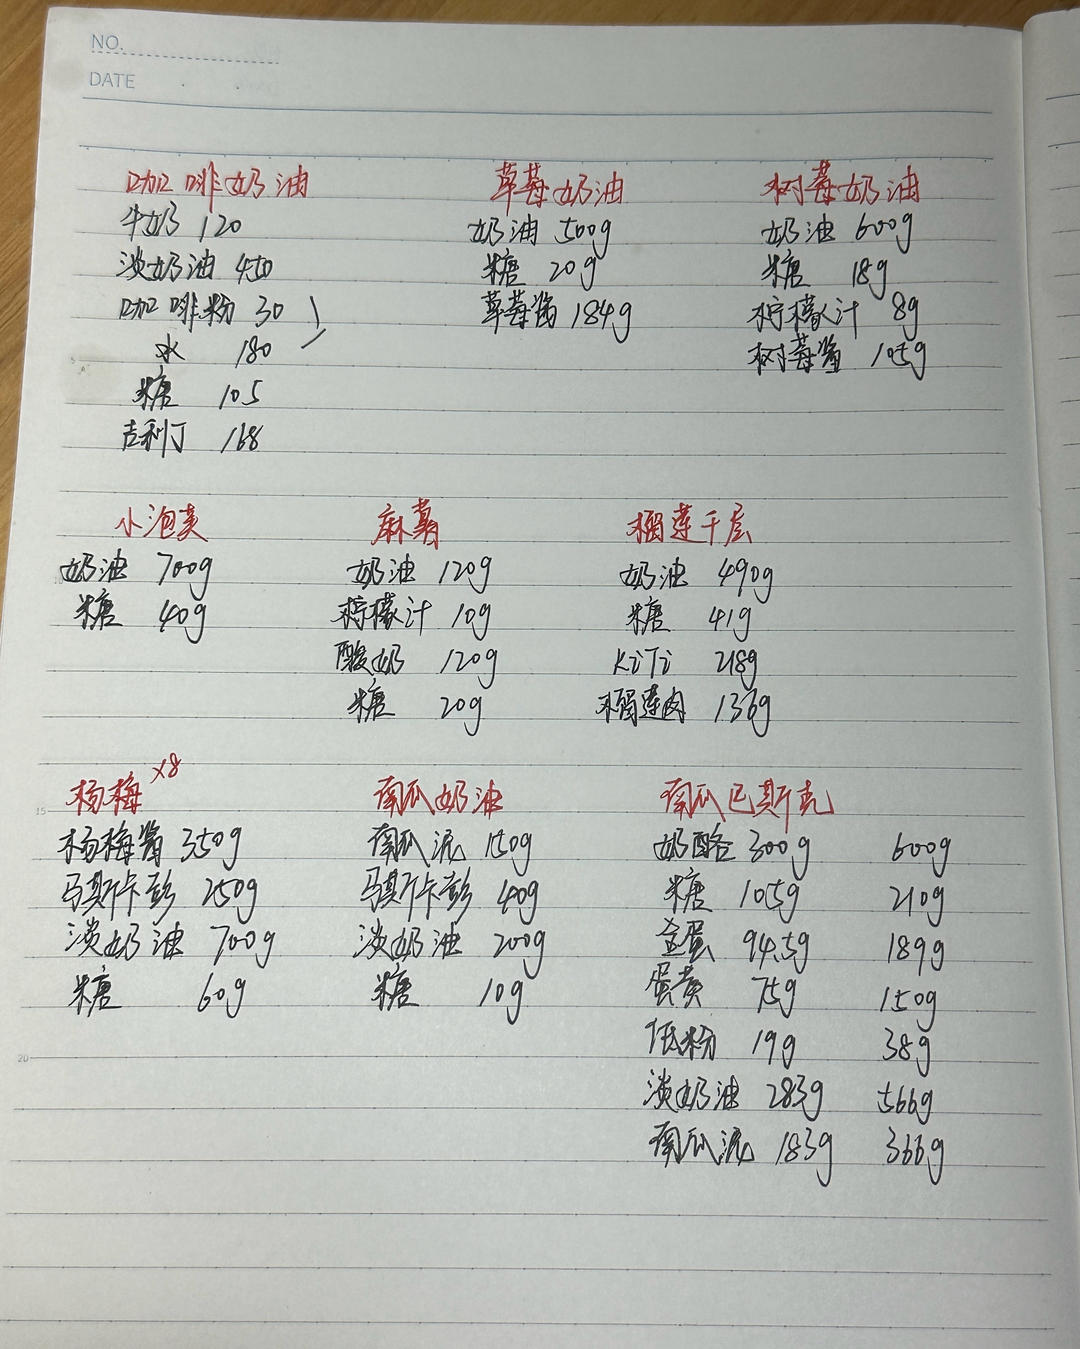 NO.
DATE
咖啡奶油
牛奶 120
淡奶油 450
咖啡粉 30
水 180
糖 105
吉利丁 168
草莓奶油
奶油 500g
糖 20g
草莓酱 184g
树莓奶油
奶油 600g
糖 18g
柠檬汁 8g
树莓酱 105g
小泡芙
奶油 700g
糖 40g
麻薯
奶油 120g
柠檬汁 10g
酸奶 120g
糖 20g
榴莲千层
奶油 490g
糖 41g
KiTi 218g
榴莲肉 136g
杨梅 ×8
杨梅酱 350g
马斯卡彭 250g
淡奶油 700g
糖 60g
南瓜奶油
南瓜泥 150g
马斯卡彭 40g
淡奶油 200g
糖 10g
南瓜巴斯克
奶酪 300g 600g
糖 105g 210g
全蛋 94.5g 189g
蛋黄 75g 150g
低粉 19g 38g
淡奶油 283g 566g
南瓜泥 183g 366g
15
20